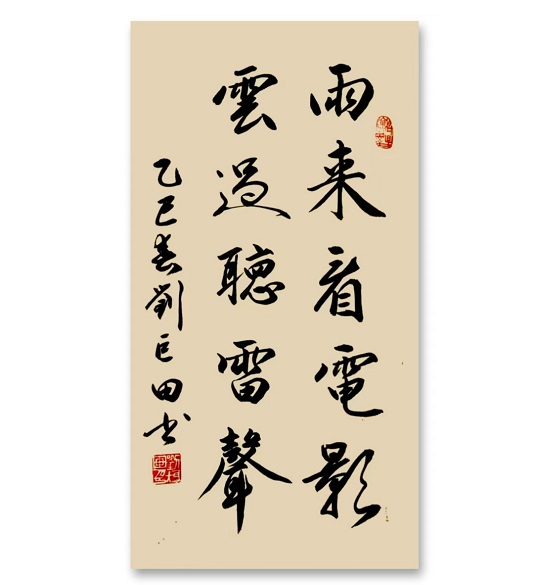 雨来看電影
雲過聽雷聲
乙巳春劉巨田书